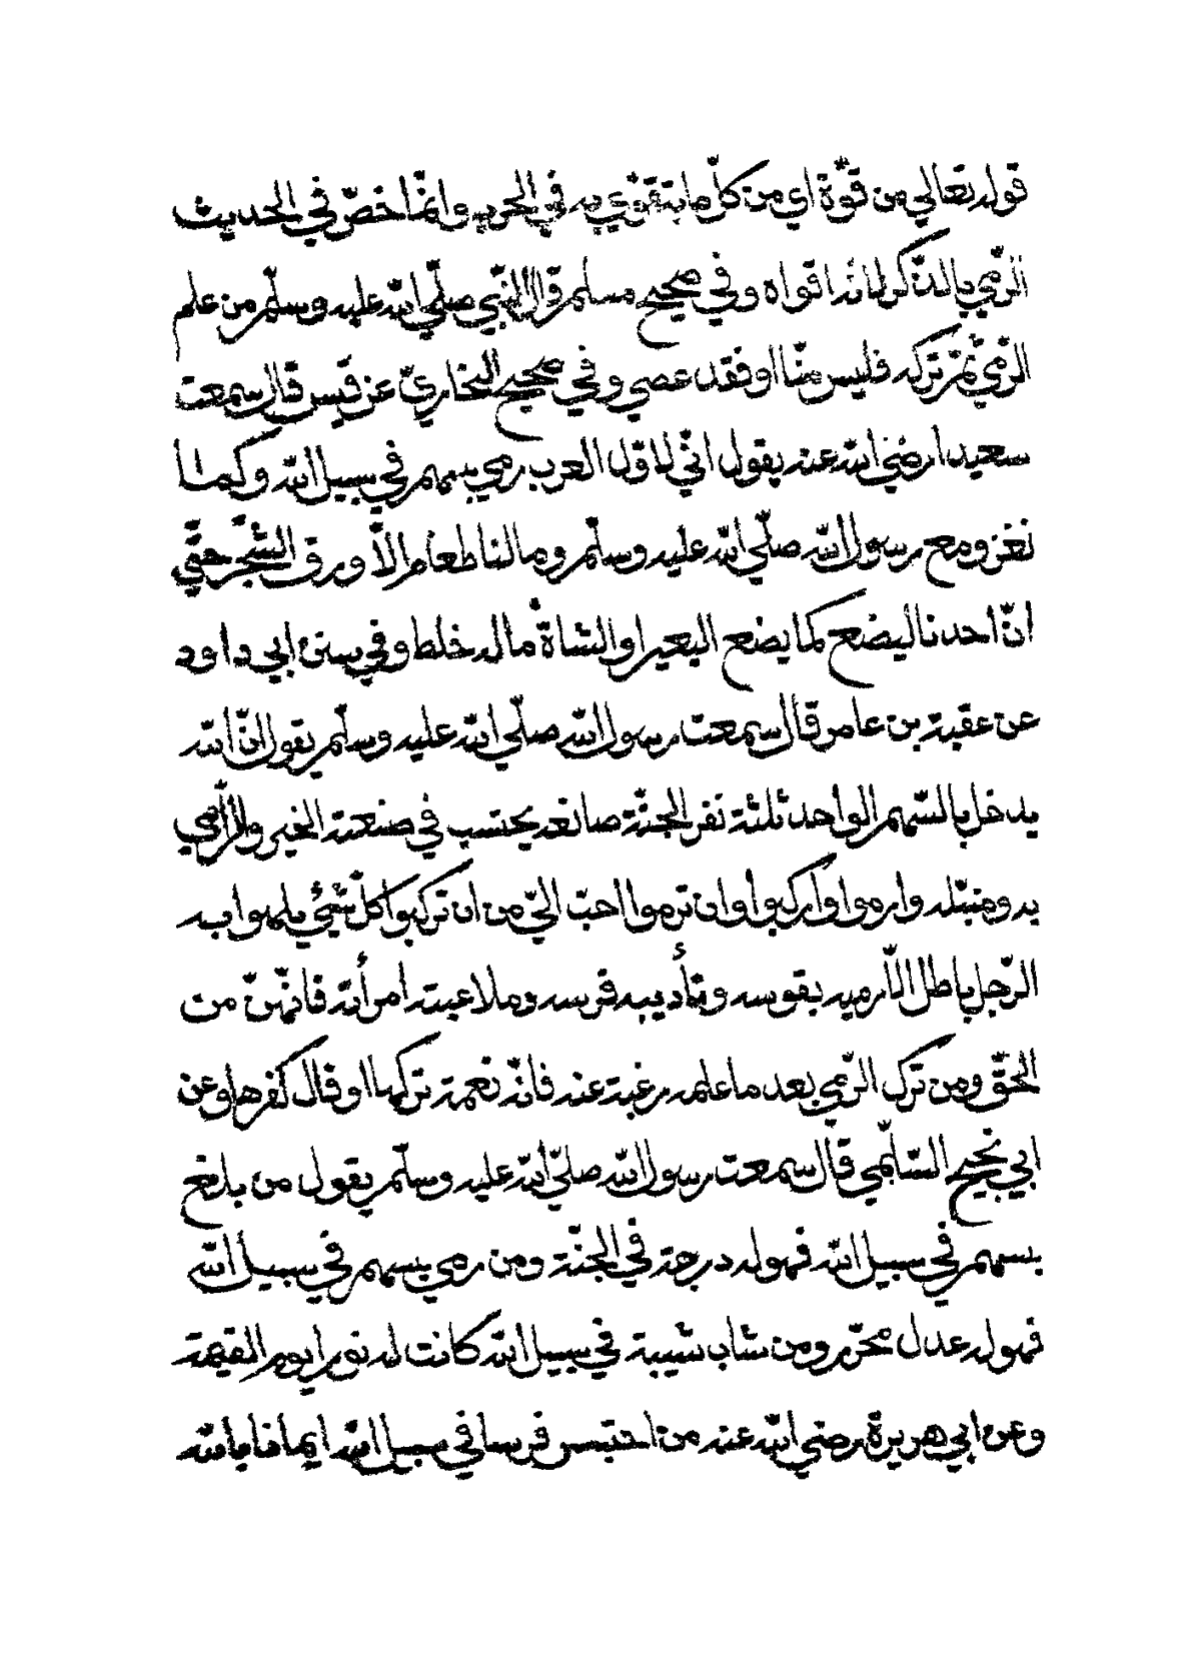 قوله تعالي من قوّة اي من كلّ ما يتقوّي به في الحرب وانمّا خصّ في الحديث
الرّمي بالذّكر لانه اقواه وفي صحيح مسلم قال النّبي صلّي اللّه عليه وسلّم من علم
الرّمي ثمّ تركه فليس منّا او فقد عصي وفي صحيح البخاريّ عن قيس قال سمعت
سعيدا رضي اللّه عنه يقول انّي لاوّل العرب رمي بسهم في سبيل اللّه وكنا
نغزو مع رسول اللّه صلّي اللّه عليه وسلّم وما لنا طعام الاّ ورق الشّجر حتّي
انّ احدنا ليضع كما يضع البعير او الشاة ماله خلط وفي سنن ابي داود
عن عقبة بن عامر قال سمعت رسول اللّه صلّي اللّه عليه وسلّم يقول انّ اللّه
يدخل بالسّهم الواحد ثلثة نفر الجنّة صانعه يحتسب في صنعته الخير والرّامي
به ومنبّله وارموا واركبوا وان ترموا احبّ اليّ من ان تركبوا كلّ شئي يلهوا به
الرّجل باطل الاّ رميه بقوسه وتأديبه فرسه وملاعبته امرأته فانّهنّ من
الحقّ ومن ترك الرّمي بعد ما علمه رغبة عنه فانّه نعمة تركها او قال كفرها وعن
ابي نجيح السّلمي قال سمعت رسول اللّه صلّي اللّه عليه وسلّم يقول من بلغ
بسهم في سبيل اللّه فهو له درجة في الجنّة ومن رمي بسهم في سبيل اللّه
فهو له عدل محرّر ومن شاب شيبة في سبيل اللّه كانت له نورا يوم القيمة
وعن ابي هريرة رضي اللّه عنه من احتبس فرسا في سبيل اللّه ايمانا باللّه